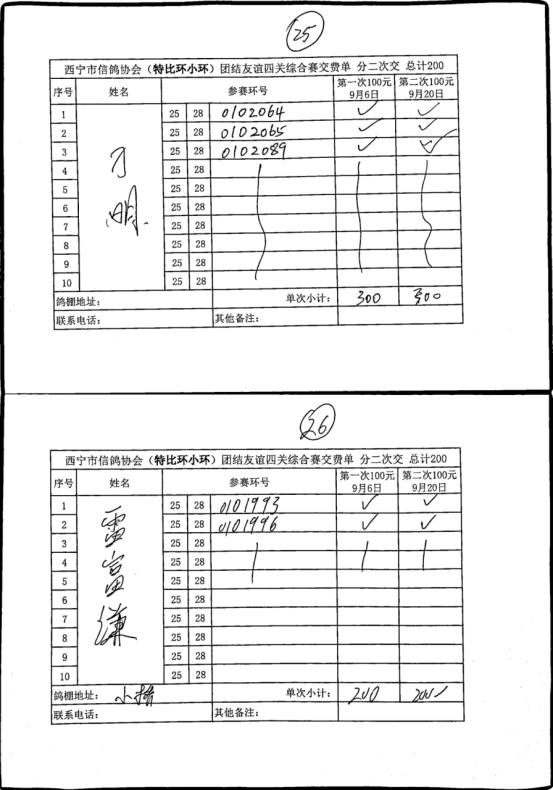 25
西宁市信鸽协会（特比环小环）团结友谊四关综合赛交费单 分二次交 总计200
序号 姓名 参赛环号 第一次100元 9月6日 第二次100元 9月20日
1 25 28 0102064 ✓ ✓
2 25 28 0102065 ✓ ✓
3 25 28 0102089 ✓ ✓
4 25 28
5 25 28
6 25 28
7 25 28
8 25 28
9 25 28
10 25 28
明
鸽棚地址： 单次小计： 300 300
联系电话： 其他备注：
26
西宁市信鸽协会（特比环小环）团结友谊四关综合赛交费单 分二次交 总计200
序号 姓名 参赛环号 第一次100元 9月6日 第二次100元 9月20日
1 25 28 0101993 ✓ ✓
2 25 28 0101996 ✓ ✓
3 25 28
4 25 28
5 25 28
6 25 28
7 25 28
8 25 28
9 25 28
10 25 28
雷富谦
鸽棚地址： 小桥 单次小计： 200 200
联系电话： 其他备注：